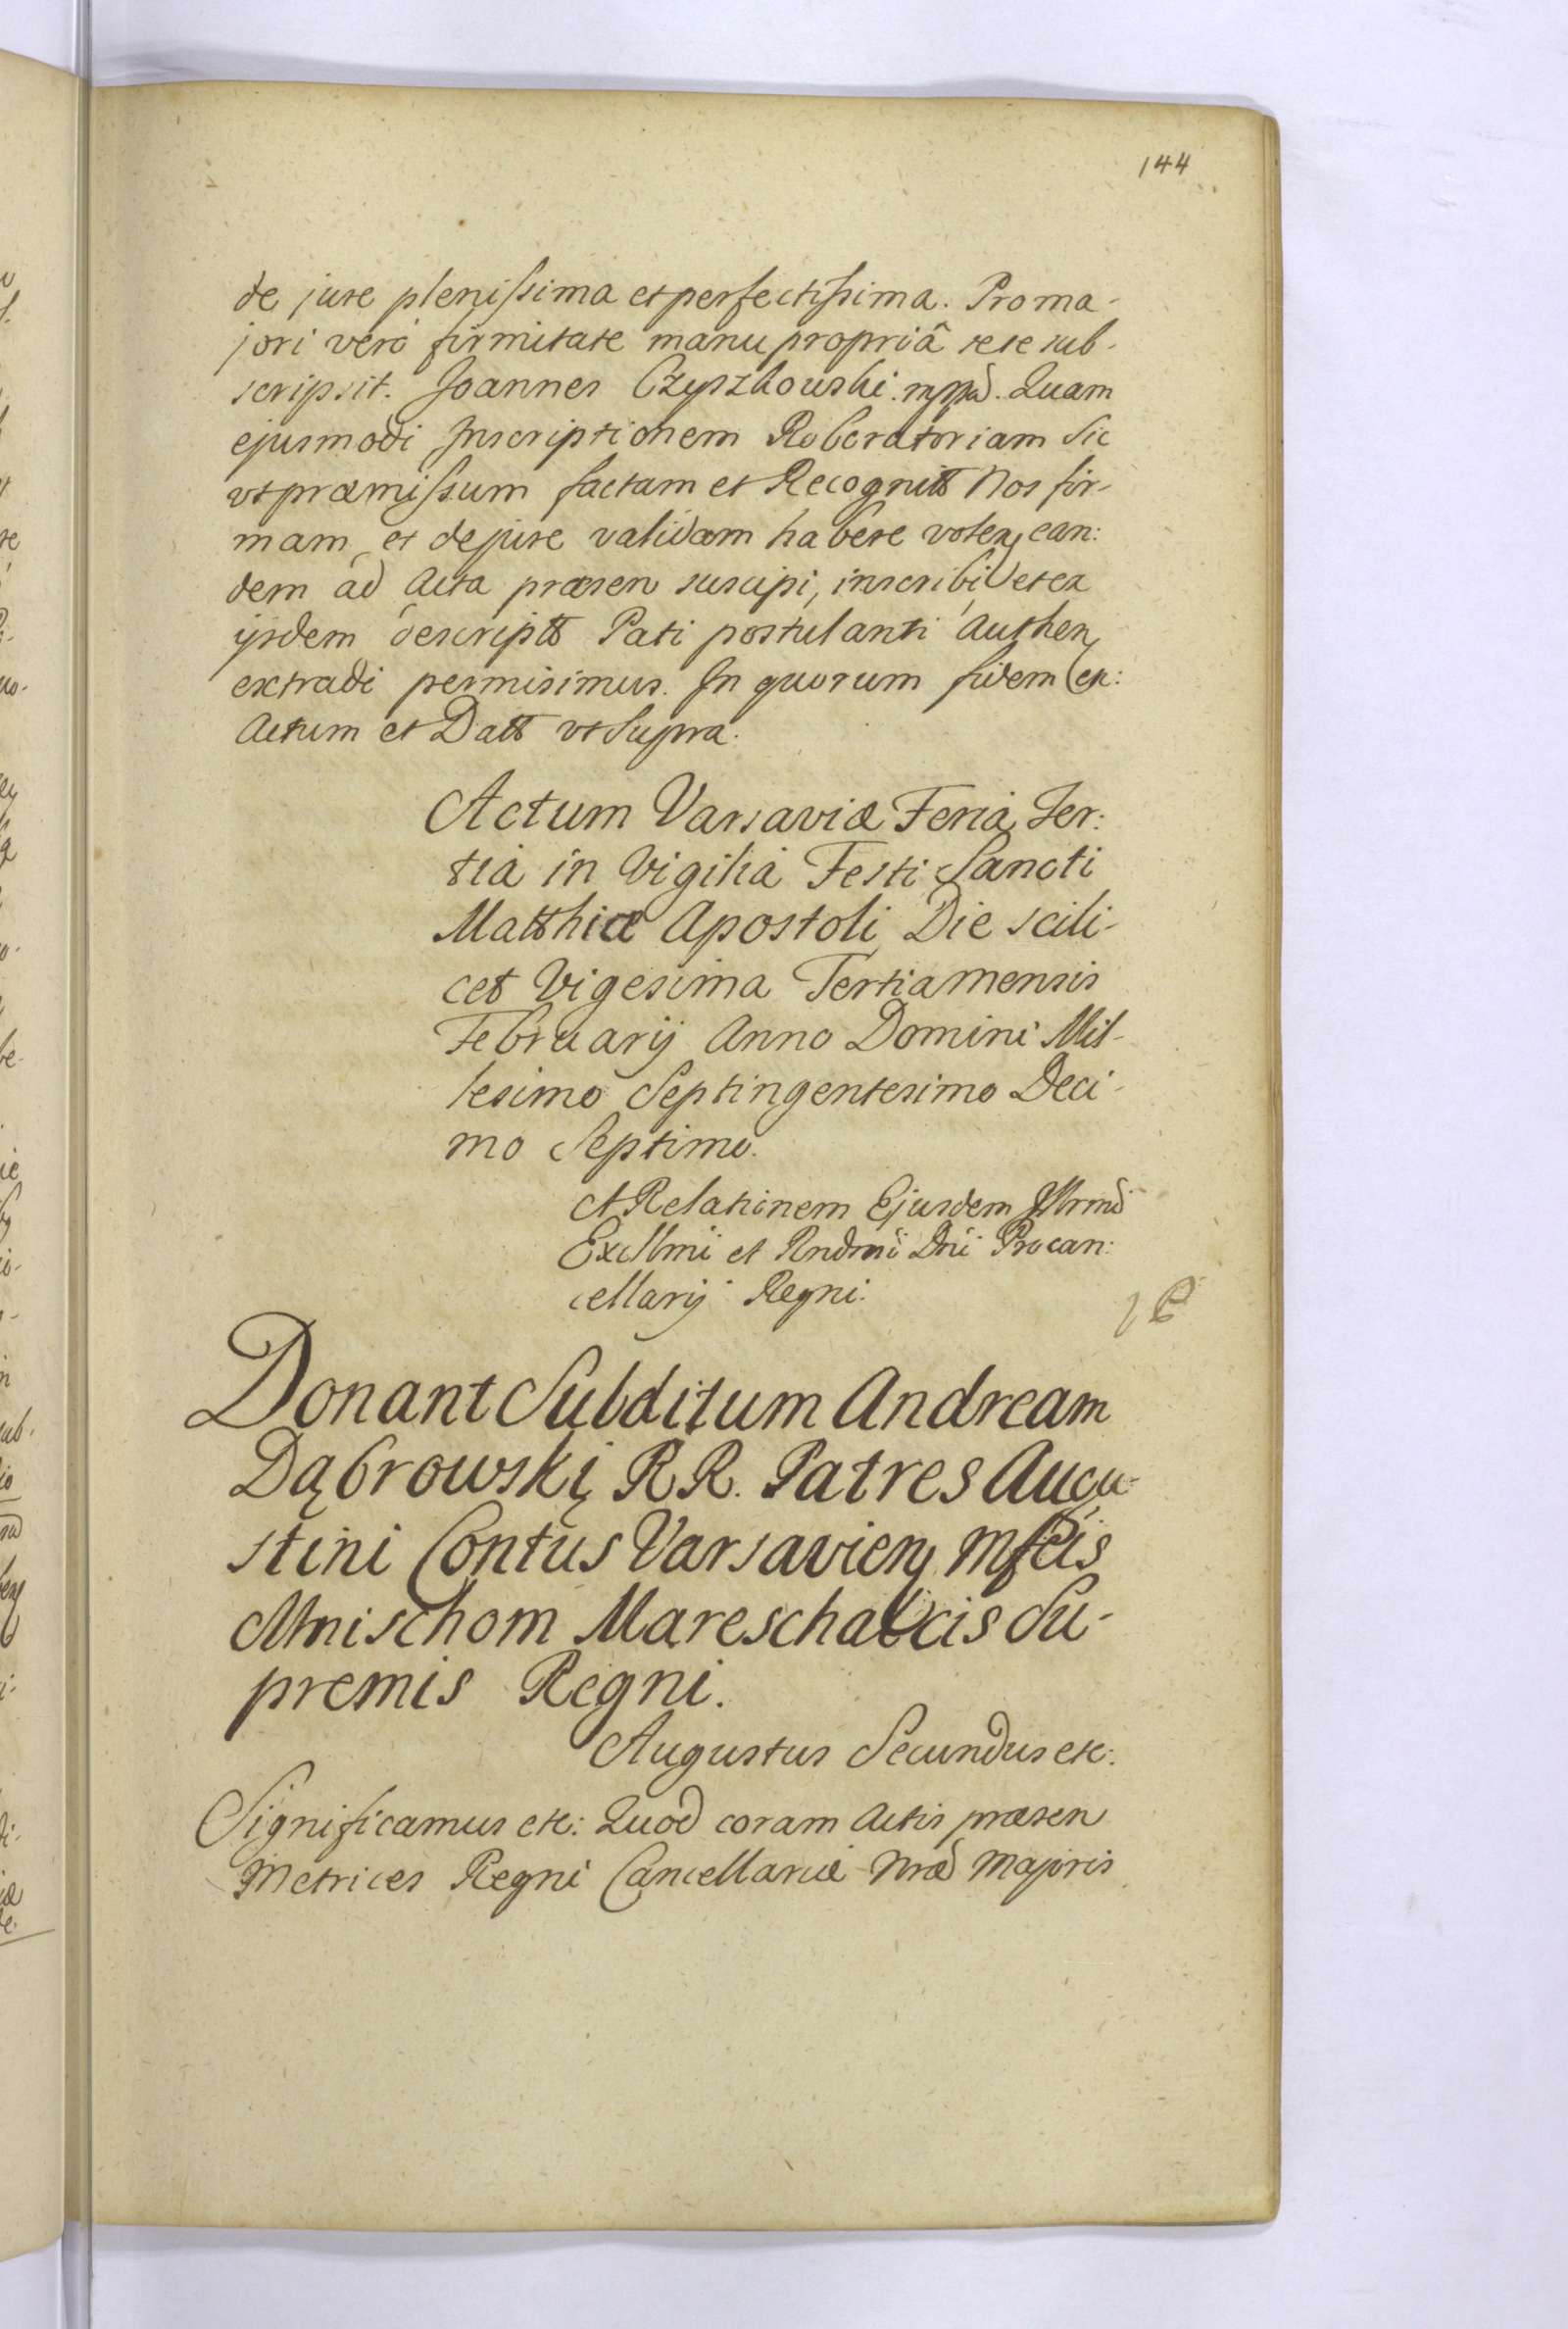 144
de jure plenissima et perfectissima. Pro ma-
jori verò firmitate manu propriâ sese sub-
scripsit. Joannes Czyszkowski mppd. Quam
ejusmodi Inscriptionem Roboratoriam Sic
vt præmissum factam et Recognitt Nos fir-
mam et de jure validam habere volen ean:
dem ad Acta præsen suscipi, inscribi et ex
ijsdem descriptt Pati postulanti Authen
extradi permisimus. In quorum fidem etc:
Actum et Datt vt Supra.
Actum Varsaviæ Feriâ Ter:
tiâ in Vigiliâ Festi Sancti
Matthiæ Apostoli Die scili-
cet Vigesima Tertia mensis
Februarij Anno Domini Mil-
lesimo Septingentesimo Deci-
mo Septimo.
Ad Relationem Ejusdem Illrmi
Excllmi et Rndmi Dni Procan:
cellarij Regni.
Donant Subditum Andream
Dąbrowskį RR. Patres Augu-
stini Contus Varsavien Mfcis
Mnischom Mareschalcis Su-
premis Regni.
Augustus Secundus etc:
Significamus etc: Quod coram Actis præsen
Metrices Regni Cancellariæ Nræ Majoris